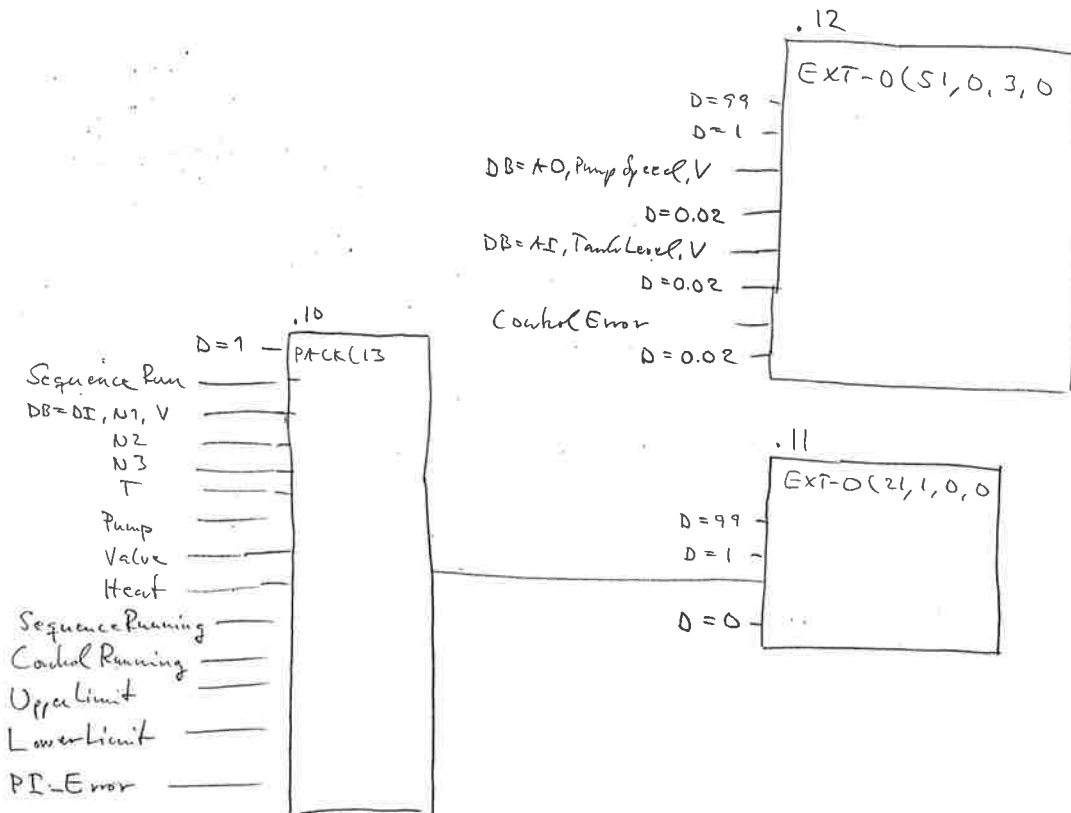 .12
EXT-O(51,0,3,0
D=99
D=1
DB=AO,PumpSpeed,V
D=0.02
DB=AI,TankLevel,V
D=0.02
ControlError
D=0.02
.10
PACK(13
D=1
SequenceRun
DB=DI,N1,V
N2
N3
T
Pump
Valve
Heat
SequenceRunning
ControlRunning
UpperLimit
LowerLimit
PI-Error
.11
EXT-O(21,1,0,0
D=99
D=1
D=0